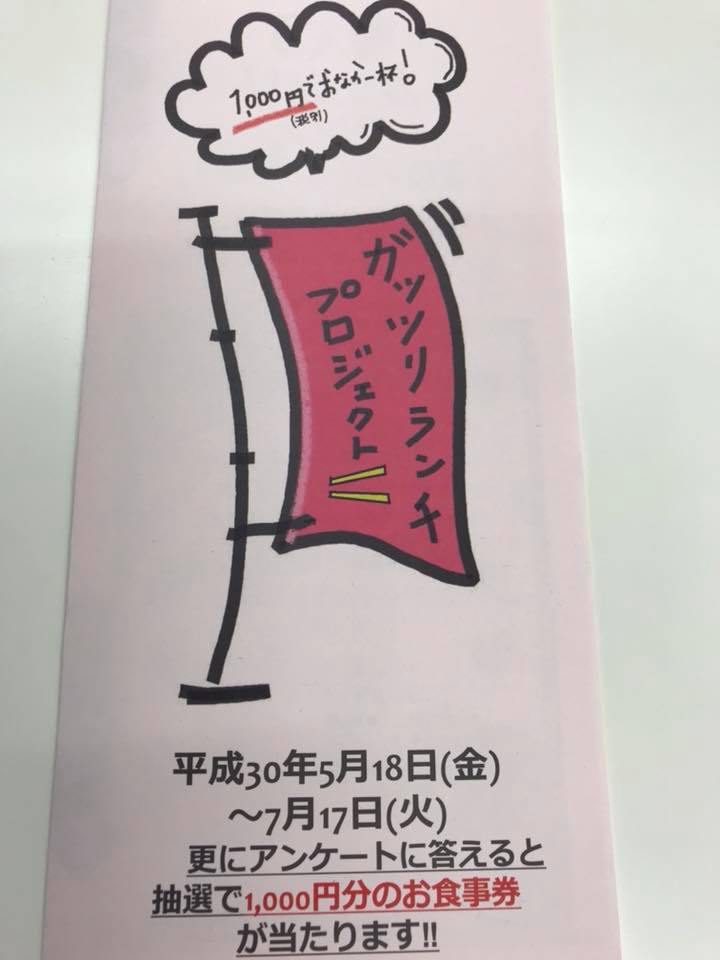 1,000円でおなか一杯!
(税別)
ガッツリランチ
プロジェクト
平成30年5月18日(金)
~7月17日(火)
更にアンケートに答えると
抽選で1,000円分のお食事券
が当たります!!